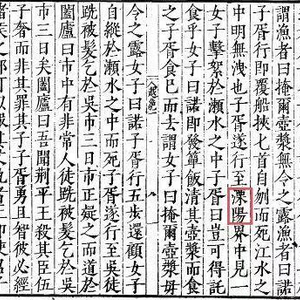 謂漁者曰掩爾壺漿無令之露漁者曰諾
子胥行即覆船挾匕首自刎而死江水之
中明無洩也子胥遂行至溧陽界中見一
女子擊絮於瀨水之中子胥曰豈可得託
食乎女子曰諾即發簞飯清其壺漿而食
之子胥食已而去謂女子曰掩爾壺漿毋
令之露女子曰諾子胥行五步還顧女子
自縱於瀨水之中而死子胥遂行至吳徒
跣被髮乞於吳市三日市正疑之而道於
闔廬曰市中有非常人徒跣被髮乞於吳
市三日矣闔廬曰吾聞荊平王殺其臣伍
子奢而非其罪其子子胥勇且智彼必經